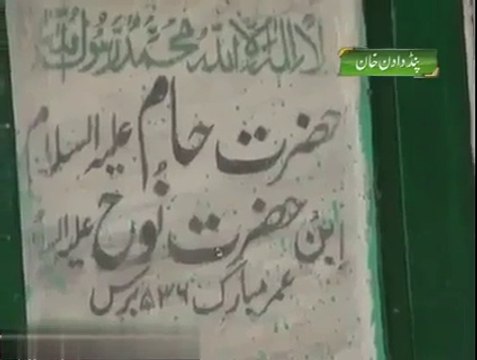 لا اله الا الله محمد رسول الله
پنڈ دادن خان
حضرت حام علیہ السلام
ابن حضرت نوح علیہ السلام
عمر مبارک ۵۳۶ برس